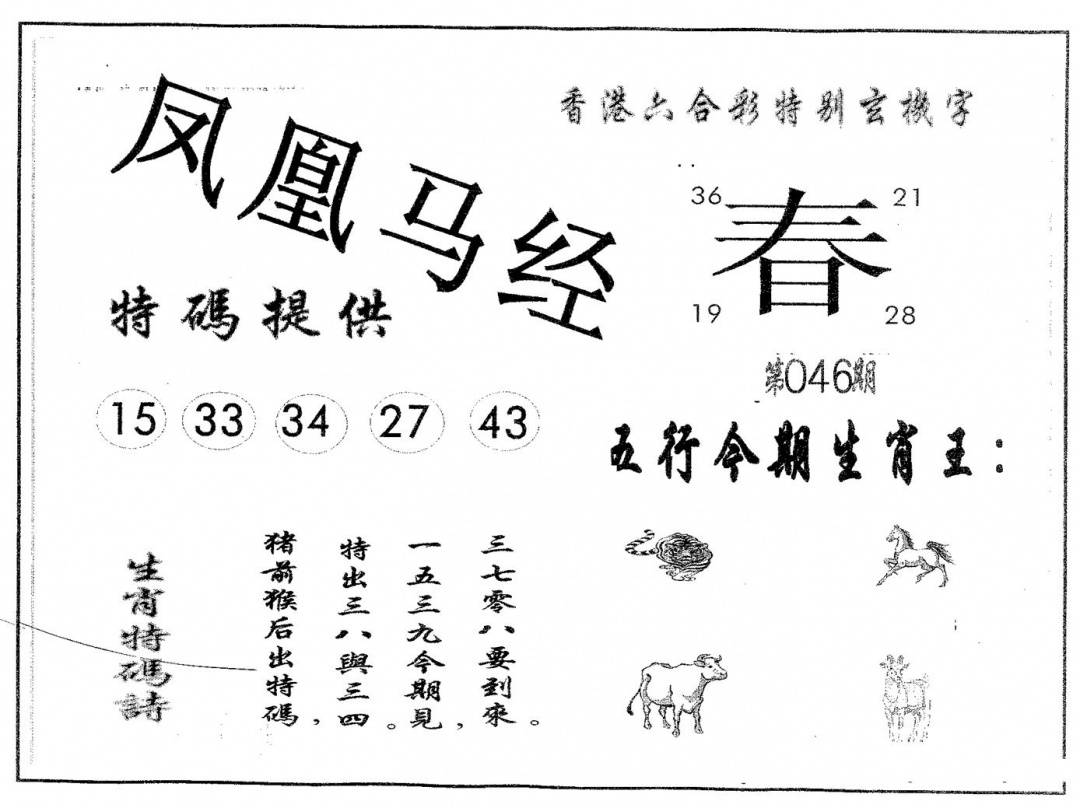 凤凰马经
香港六合彩特别玄機字
36 21
春
19 28
第046期
特碼提供
15 33 34 27 43
五行今期生肖王：
生肖特碼詩
猪前猴后出特碼，
特出三八與三四。
一五三九今期見，
三七零八要到來。